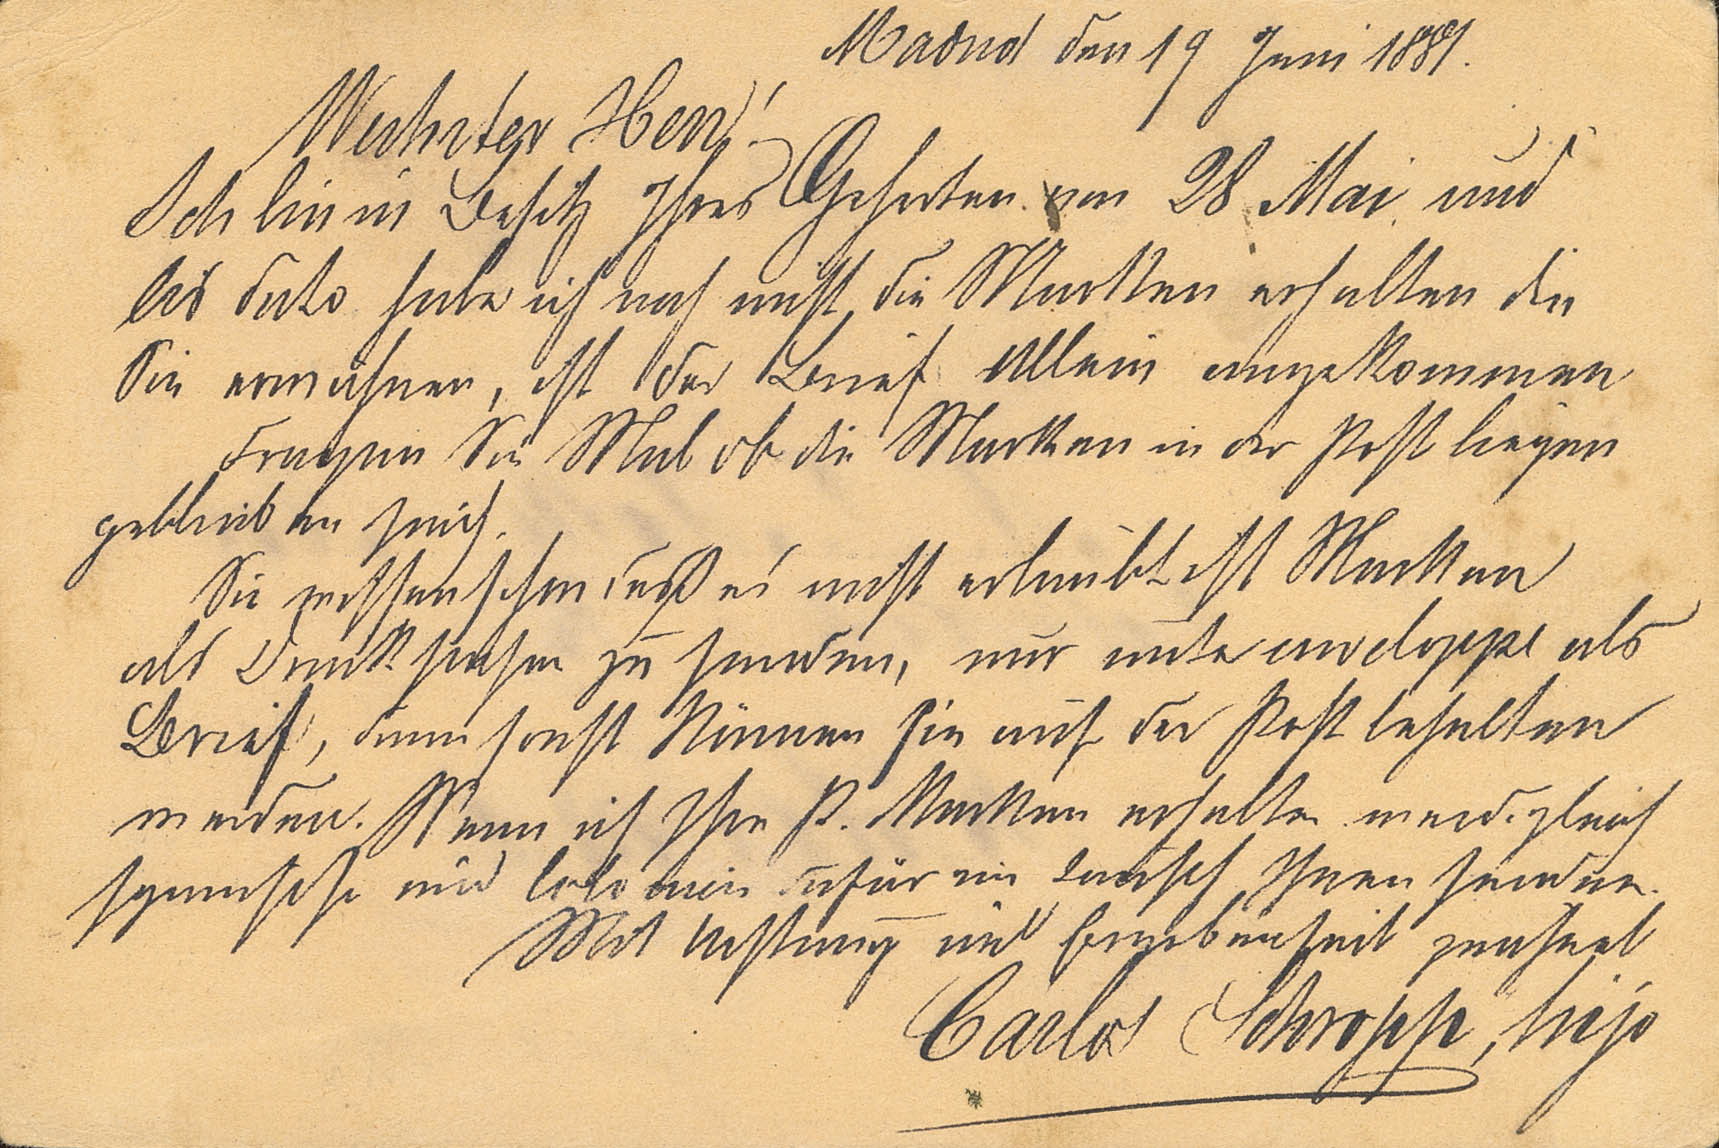 Madrid den 19 Juni 1881.
Werhter Herr!
Ich bin in Besitz Ihres Geehrten von 28 Mai und
bis dato habe ich noch nicht die Marken erhalten die
Sie erwähnen, ist der Brief allein angekommen
Fragen Sie Mal ob die Marken in der Post liegen
geblieben sind.
Sie wissen schon daß es nicht erlaubt ist Marken
als Drucksachen zu senden, nur unter enveloppe als
Brief, denn sonst können sie auf der Post behalten
werden. Wenn ich Ihre P. Marken erhalte werde gleich
spanische und dafür im Tausch Ihnen senden.
Mit Achtung und Ergebenheit zeichnet
Carlos Schropp, hijo